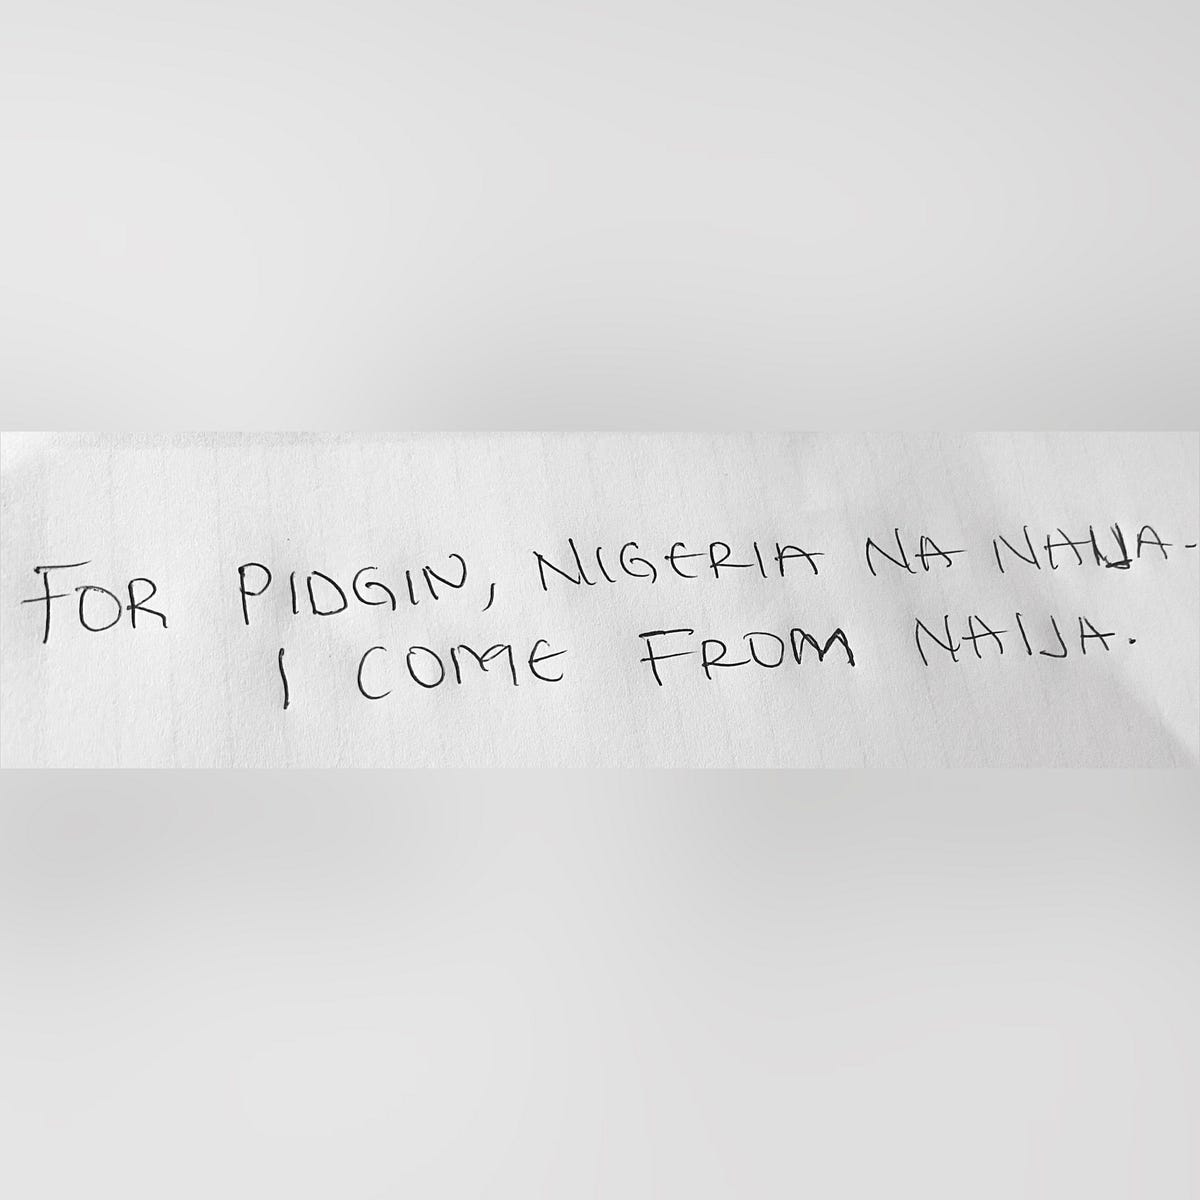 FOR PIDGIN, NIGERIA NA NAIJA-
I COME FROM NAIJA.